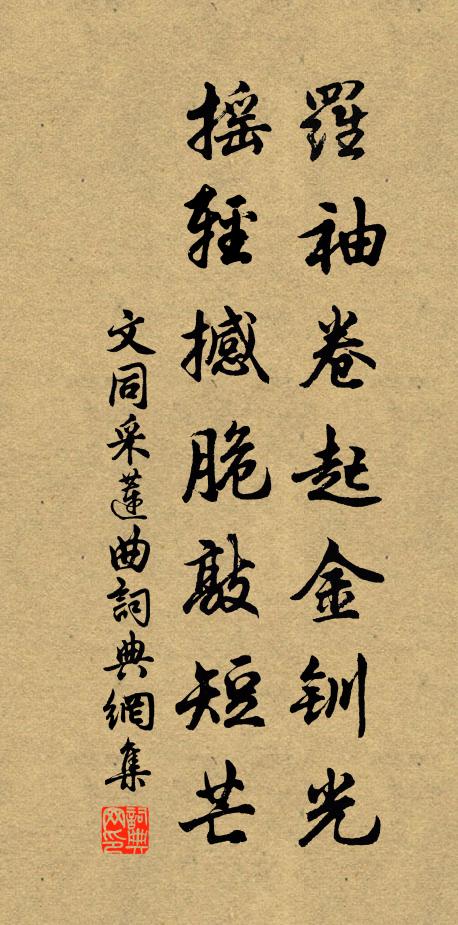 羅袖卷起金釧光
摇輕撼脆敲短芒
文同采蓮曲詞典網集
詞典网印